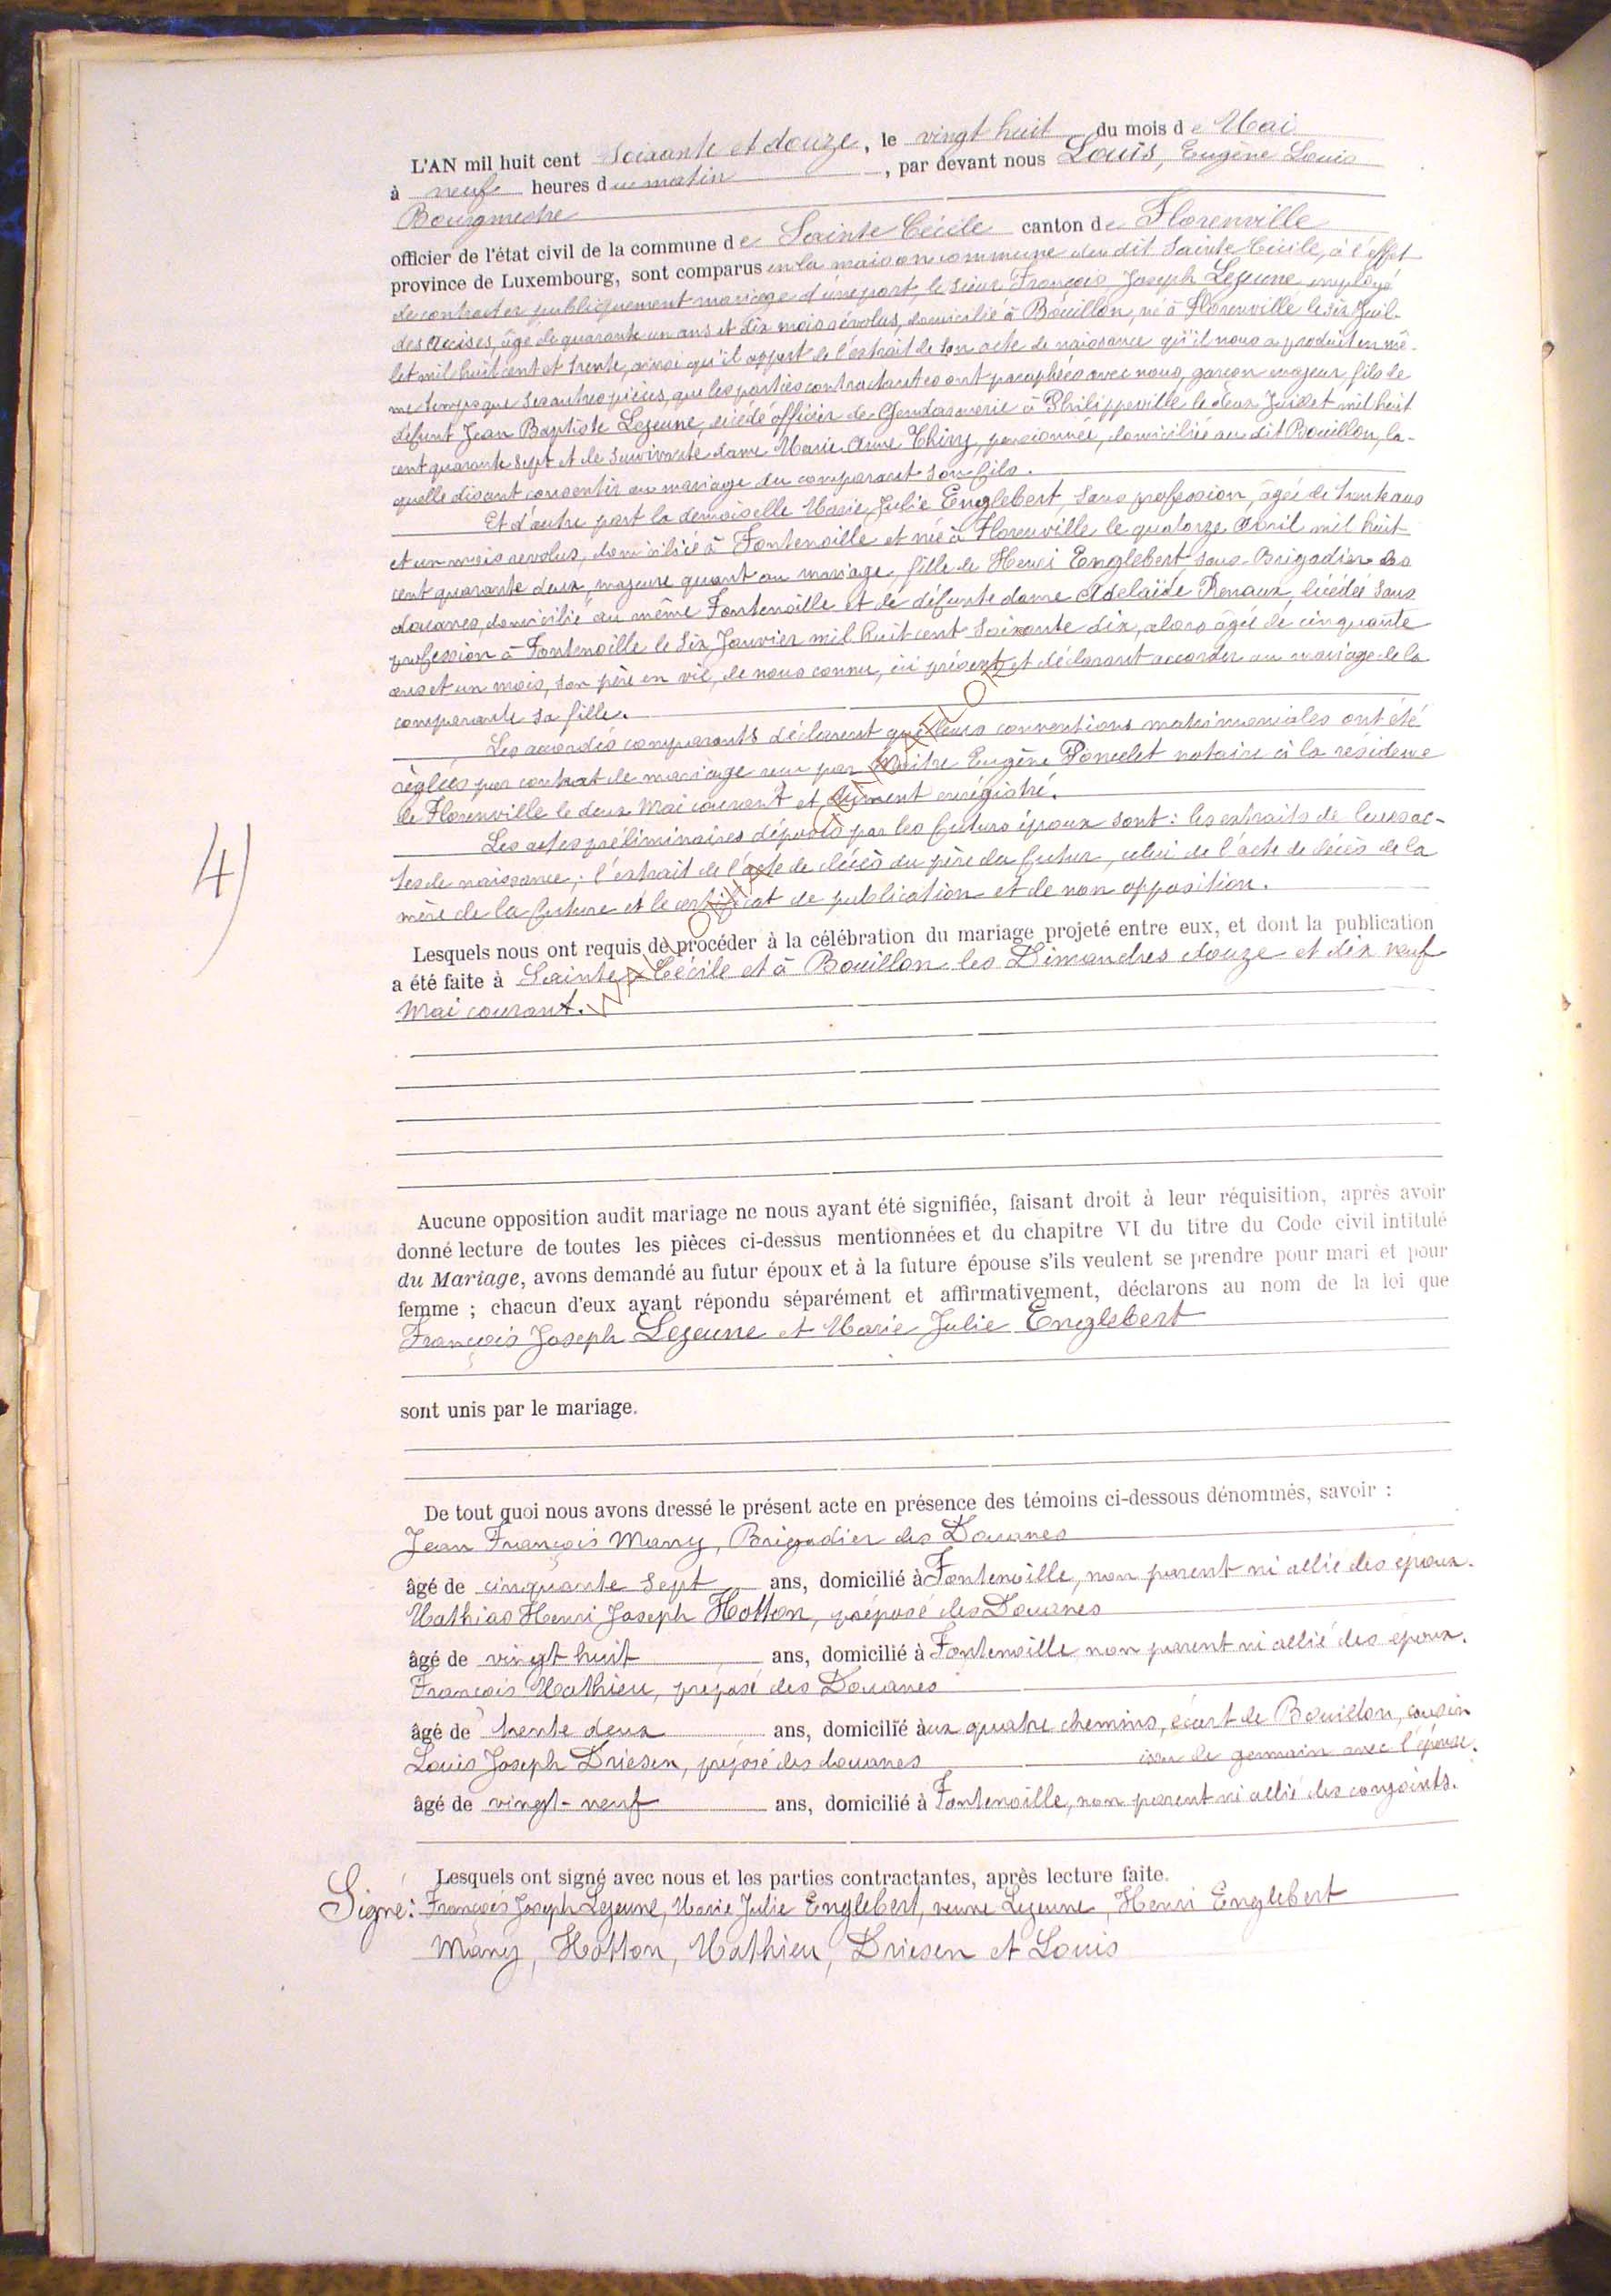 L'AN mil huit cent soixante et douze, le vingt huit du mois de Mai
à neuf heures du matin, par devant nous Louis, Eugène Louis
Bourgmestre
officier de l'état civil de la commune de Sainte Cécile canton de Florenville
province de Luxembourg, sont comparus en la maison commune du dit Sainte Cécile, à l'effet
de contracter publiquement mariage d'une part, le sieur François Joseph Lejeune employé
des accises, âgé de quarante un ans et dix mois révolus, domicilié à Bouillon, né à Florenville le six Juil-
let mil huit cent et trente, ainsi qu'il appert de l'extrait de son acte de naissance qu'il nous a produit en mê-
me temps que ses autres pièces, que les parties contractantes ont paraphées avec nous, garçon majeur, fils de
défunt Jean Baptiste Lejeune, décédé officier de Gendarmerie à Philippeville le deux Juillet mil huit
cent quarante sept et de survivante dame Marie Anne Thiry, pensionnée, domiciliée au dit Bouillon, la-
quelle disant consentir au mariage du comparant son fils.
Et d'autre part la demoiselle Marie Julie Englebert, sans profession, âgée de trente ans
et un mois revolus, domiciliée à Fontenoille et née à Florenville le quatorze Avril mil huit
cent quarante deux, majeure quant au mariage, fille de Henri Englebert sous-Brigadier des
douanes, domicilié au même Fontenoille et de défunte dame Adelaïde Renaux, décédée sans
profession à Fontenoille le six Janvier mil huit cent soixante dix, alors âgée de cinquante
ans et un mois, son père en vie, de nous connu, ici présent et déclarant accorder au mariage de la
comparante sa fille.
Les accordés comparants déclarent que leurs conventions matrimoniales ont été
réglées par contrat de mariage reçu par Maitre Eugène Poncelet notaire à la résidence
de Florenville le deux Mai courant et dûment enrégistré.
Les actes préliminaires déposés par les futurs époux sont: les extraits de leurs ac-
tes de naissance; l'extrait de l'acte de décès du père du futur, celui de l'acte de décès de la
mère de la future et le certificat de publication et de non opposition.
4)
Lesquels nous ont requis de procéder à la célébration du mariage projeté entre eux, et dont la publication
a été faite à Sainte Cécile et à Bouillon les Dimanches douze et dix neuf
Mai courant.
Aucune opposition audit mariage ne nous ayant été signifiée, faisant droit à leur réquisition, après avoir
donné lecture de toutes les pièces ci-dessus mentionnées et du chapitre VI du titre du Code civil intitulé
du Mariage, avons demandé au futur époux et à la future épouse s'ils veulent se prendre pour mari et pour
femme ; chacun d'eux ayant répondu séparément et affirmativement, déclarons au nom de la loi que
François Joseph Lejeune et Marie Julie Englebert
sont unis par le mariage.
De tout quoi nous avons dressé le présent acte en présence des témoins ci-dessous dénommés, savoir :
Jean François Many, Brigadier des Douanes
âgé de cinquante sept ans, domicilié à Fontenoille, non parent ni allié des époux.
Mathias Henri Joseph Hotton, préposé des Douanes
âgé de vingt huit ans, domicilié à Fontenoille non parent ni allié des époux.
François Mathieu, préposé des Douanes
âgé de trente deux ans, domicilié aux quatre chemins, écart de Bouillon, cousin
Louis Joseph Driesen, préposé des douanes issu de germain avec l'épouse.
âgé de vingt-neuf ans, domicilié à Fontenoille, non parent ni allié des conjoints.
Lesquels ont signé avec nous et les parties contractantes, après lecture faite.
Signé: François Joseph Lejeune, Marie Julie Englebert, veuve Lejeune, Henri Englebert
Many, Hotton, Mathieu, Driesen et Louis